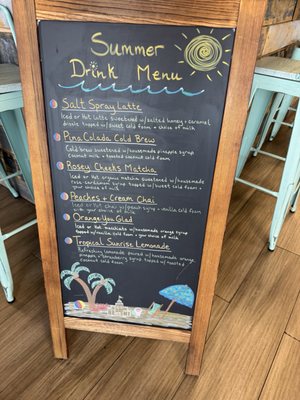 Summer
Drink Menu
Salt Spray Latte
Iced or Hot latte sweetened w/ salted honey + caramel
drizzle topped w/ sweet cold foam + choice of milk
Pina Colada Cold Brew
Cold brew sweetened w/ housemade pineapple syrup
coconut milk + toasted coconut cold foam
Rosey Cheeks Matcha
Iced or Hot organic matcha sweetened w/ housemade
rose-cardamom syrup topped w/ sweet cold foam +
choice of milk
Peaches + Cream Chai
Iced or Hot Chai w/ peach syrup + vanilla cold foam
with your choice of milk
Orange-You Glad
Iced or Hot w/ housemade orange syrup
topped w/ vanilla cold foam + your choice of milk
Tropical Sunrise Lemonade
Refreshing lemonade paired w/ housemade orange,
pineapple + strawberry syrup topped w/ toasted
coconut cold foam